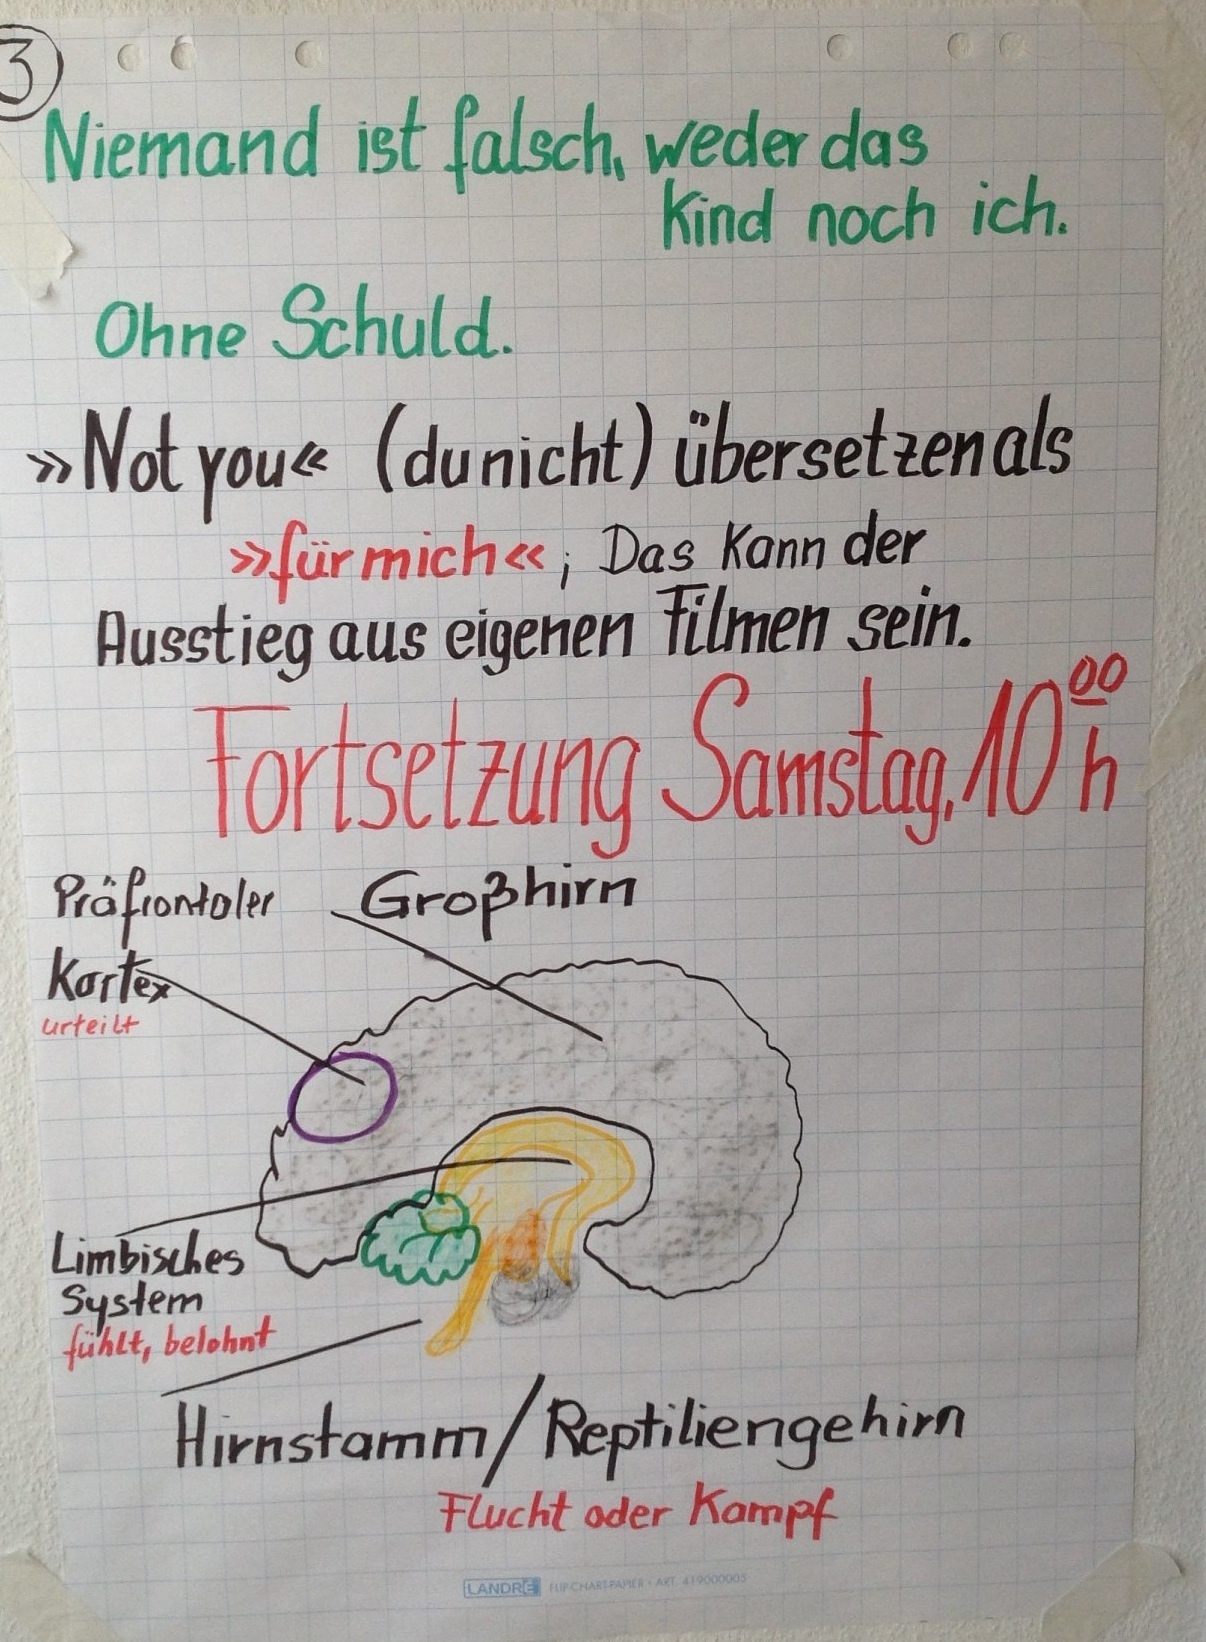 3
Niemand ist falsch, weder das
Kind noch ich.
Ohne Schuld.
»Not you« (du nicht) übersetzen als
»für mich«; Das kann der
Ausstieg aus eigenen Filmen sein.
Fortsetzung Samstag, 10⁰⁰ h
Präfrontaler
Kortex
urteilt
Großhirn
Limbisches
System
fühlt, belohnt
Hirnstamm/Reptiliengehirn
Flucht oder Kampf
LANDRÉ FLIP-CHART-PAPIER • ART. 419000005